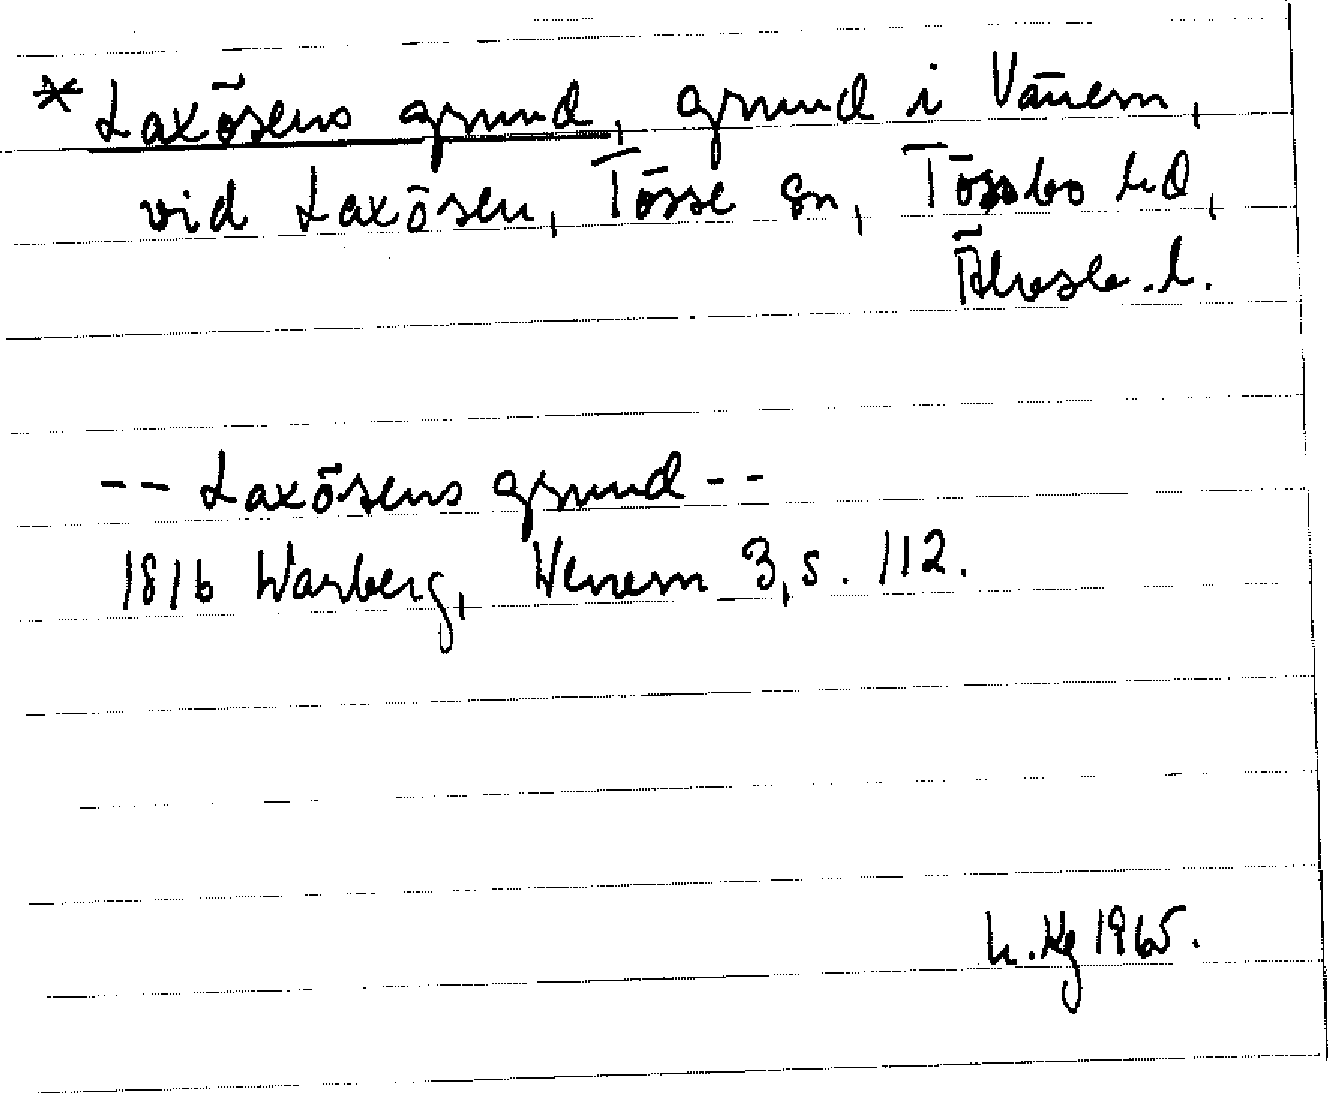 *Laxösens grund, grund i Vänern,
vid Laxösen, Tösse sn, Tössbo hd,
Älvsb. l.
-- Laxösens grund --
1816 Warberg, Wenern 3, s. 112.
h. Kg 1965.